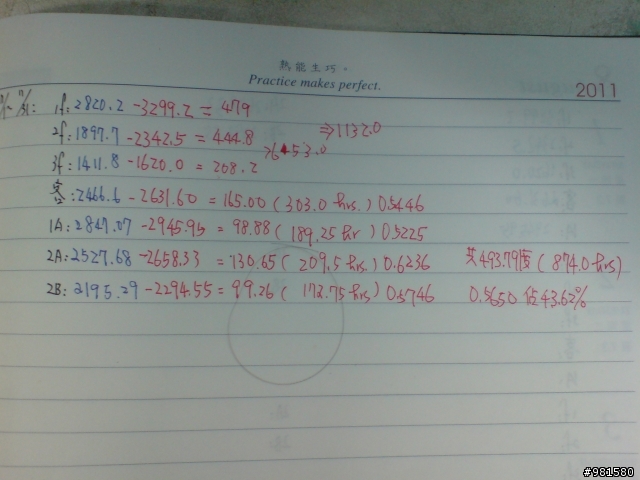 熟能生巧。
Practice makes perfect.
2011
1f: 2820.2 - 3299.2 = 479
2f: 1897.7 - 2342.5 = 444.8 ⇒1132.0
3f: 1411.8 - 1620.0 = 208.2 >653.0
客: 2466.6 - 2631.60 = 165.00 (303.0 hrs.) 0.5446
1A: 2847.07 - 2945.95 = 98.88 (189.25 hr) 0.5225
2A: 2527.68 - 2658.33 = 130.65 (209.5 hrs) 0.6236 共493.79度 (874.0 hrs)
2B: 2195.29 - 2294.55 = 99.26 (172.75 hrs) 0.5746 0.5650 佔43.62%
#981580